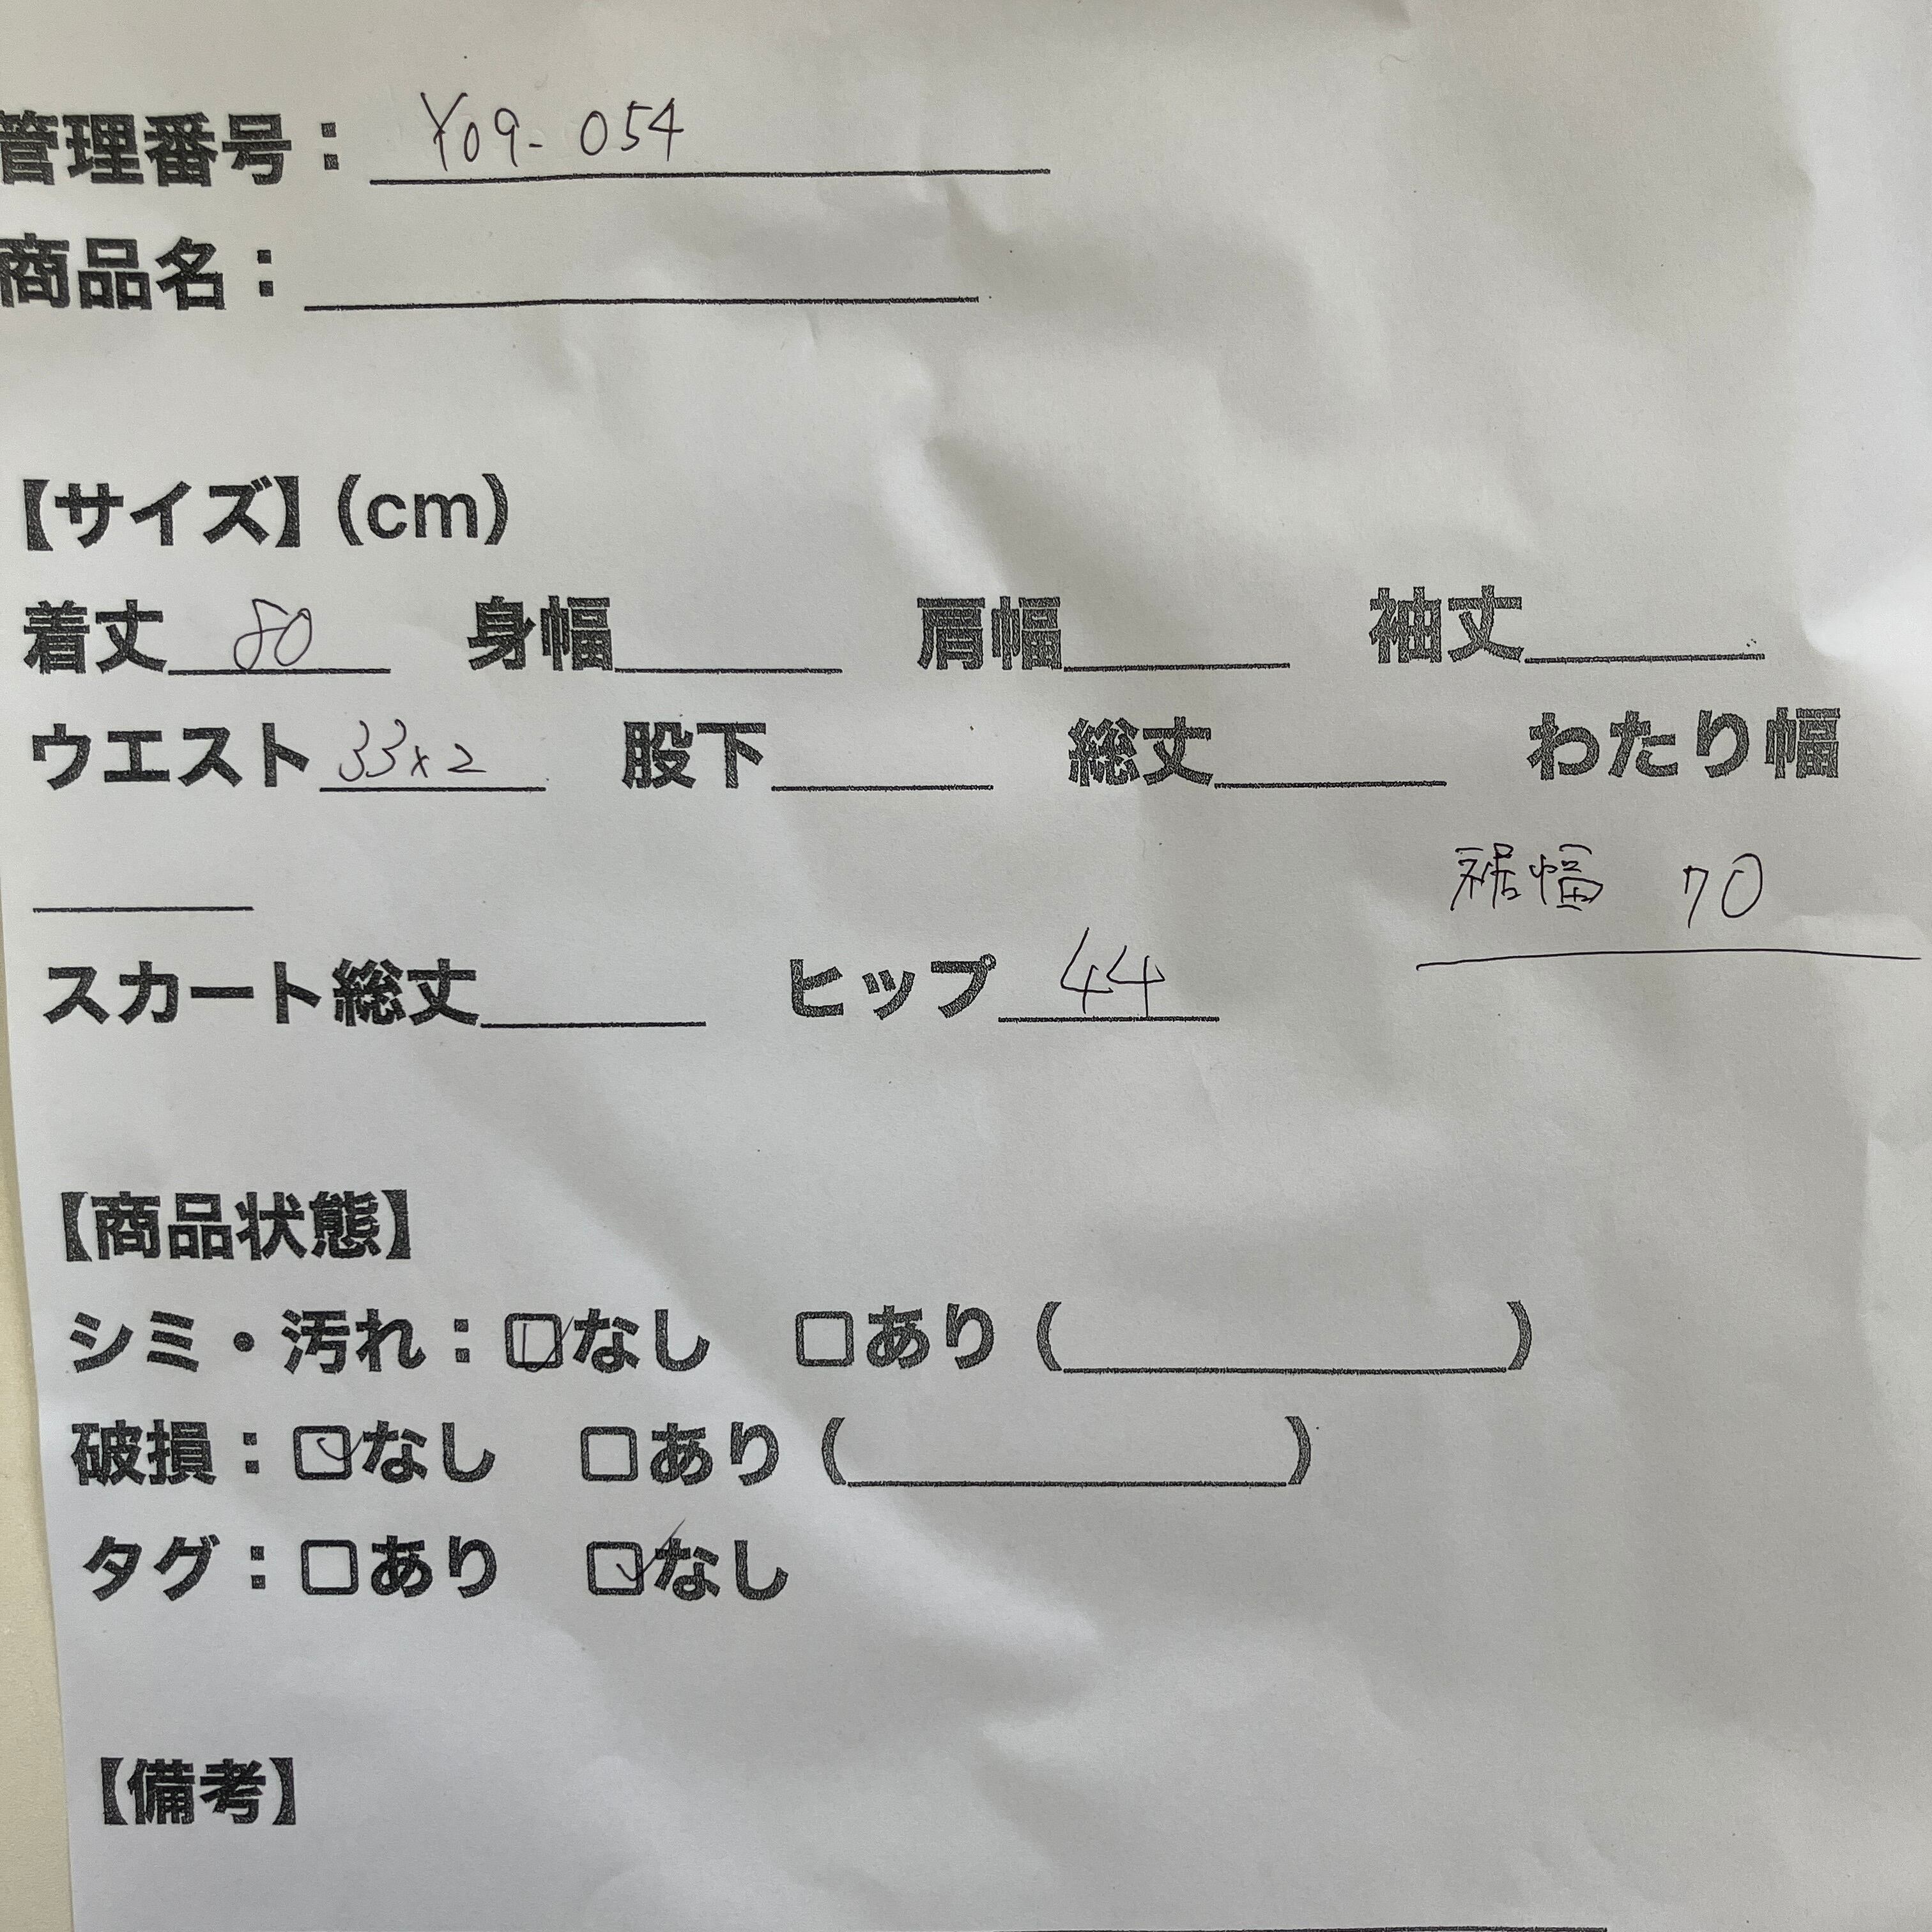 管理番号：Y09-054
商品名：
【サイズ】(cm)
着丈 80 身幅 肩幅 袖丈
ウエスト 33x2 股下 総丈 わたり幅
裾幅 70
スカート総丈 ヒップ 44
【商品状態】
シミ・汚れ：☑なし □あり（　　　）
破損：☑なし □あり（　　　）
タグ：□あり ☑なし
【備考】